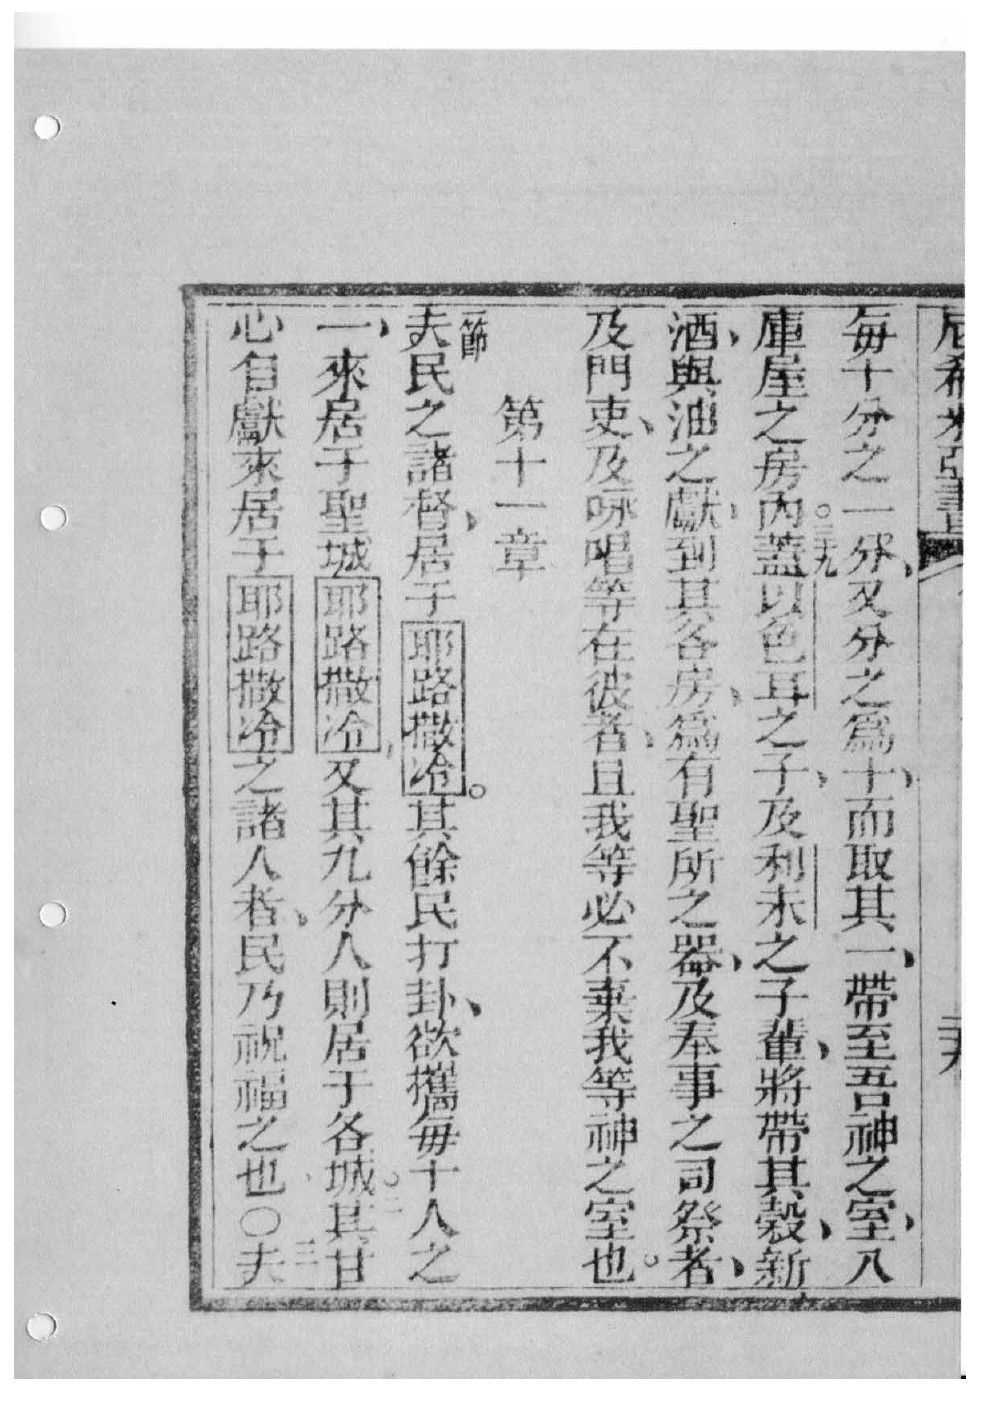 尼希米亞書
二十九
每十分之一分、又分之爲十、而取其一、帶至吾神之室、入
庫屋之房內。三十九蓋以色耳之子、及利未之子輩、將帶其穀、新
酒、與油之獻、到其各房、爲有聖所之器、及奉事之司祭者、
及門吏、及咏唱等在彼者、且我等必不棄我等神之室也。
第十一章
一節夫民之諸督、居于耶路撒冷。其餘民打卦、欲攜每十人之
一、來居于聖城耶路撒冷、又其九分人則居于各城。二其甘
心自獻來居于耶路撒冷之諸人者、民乃祝福之也○三夫